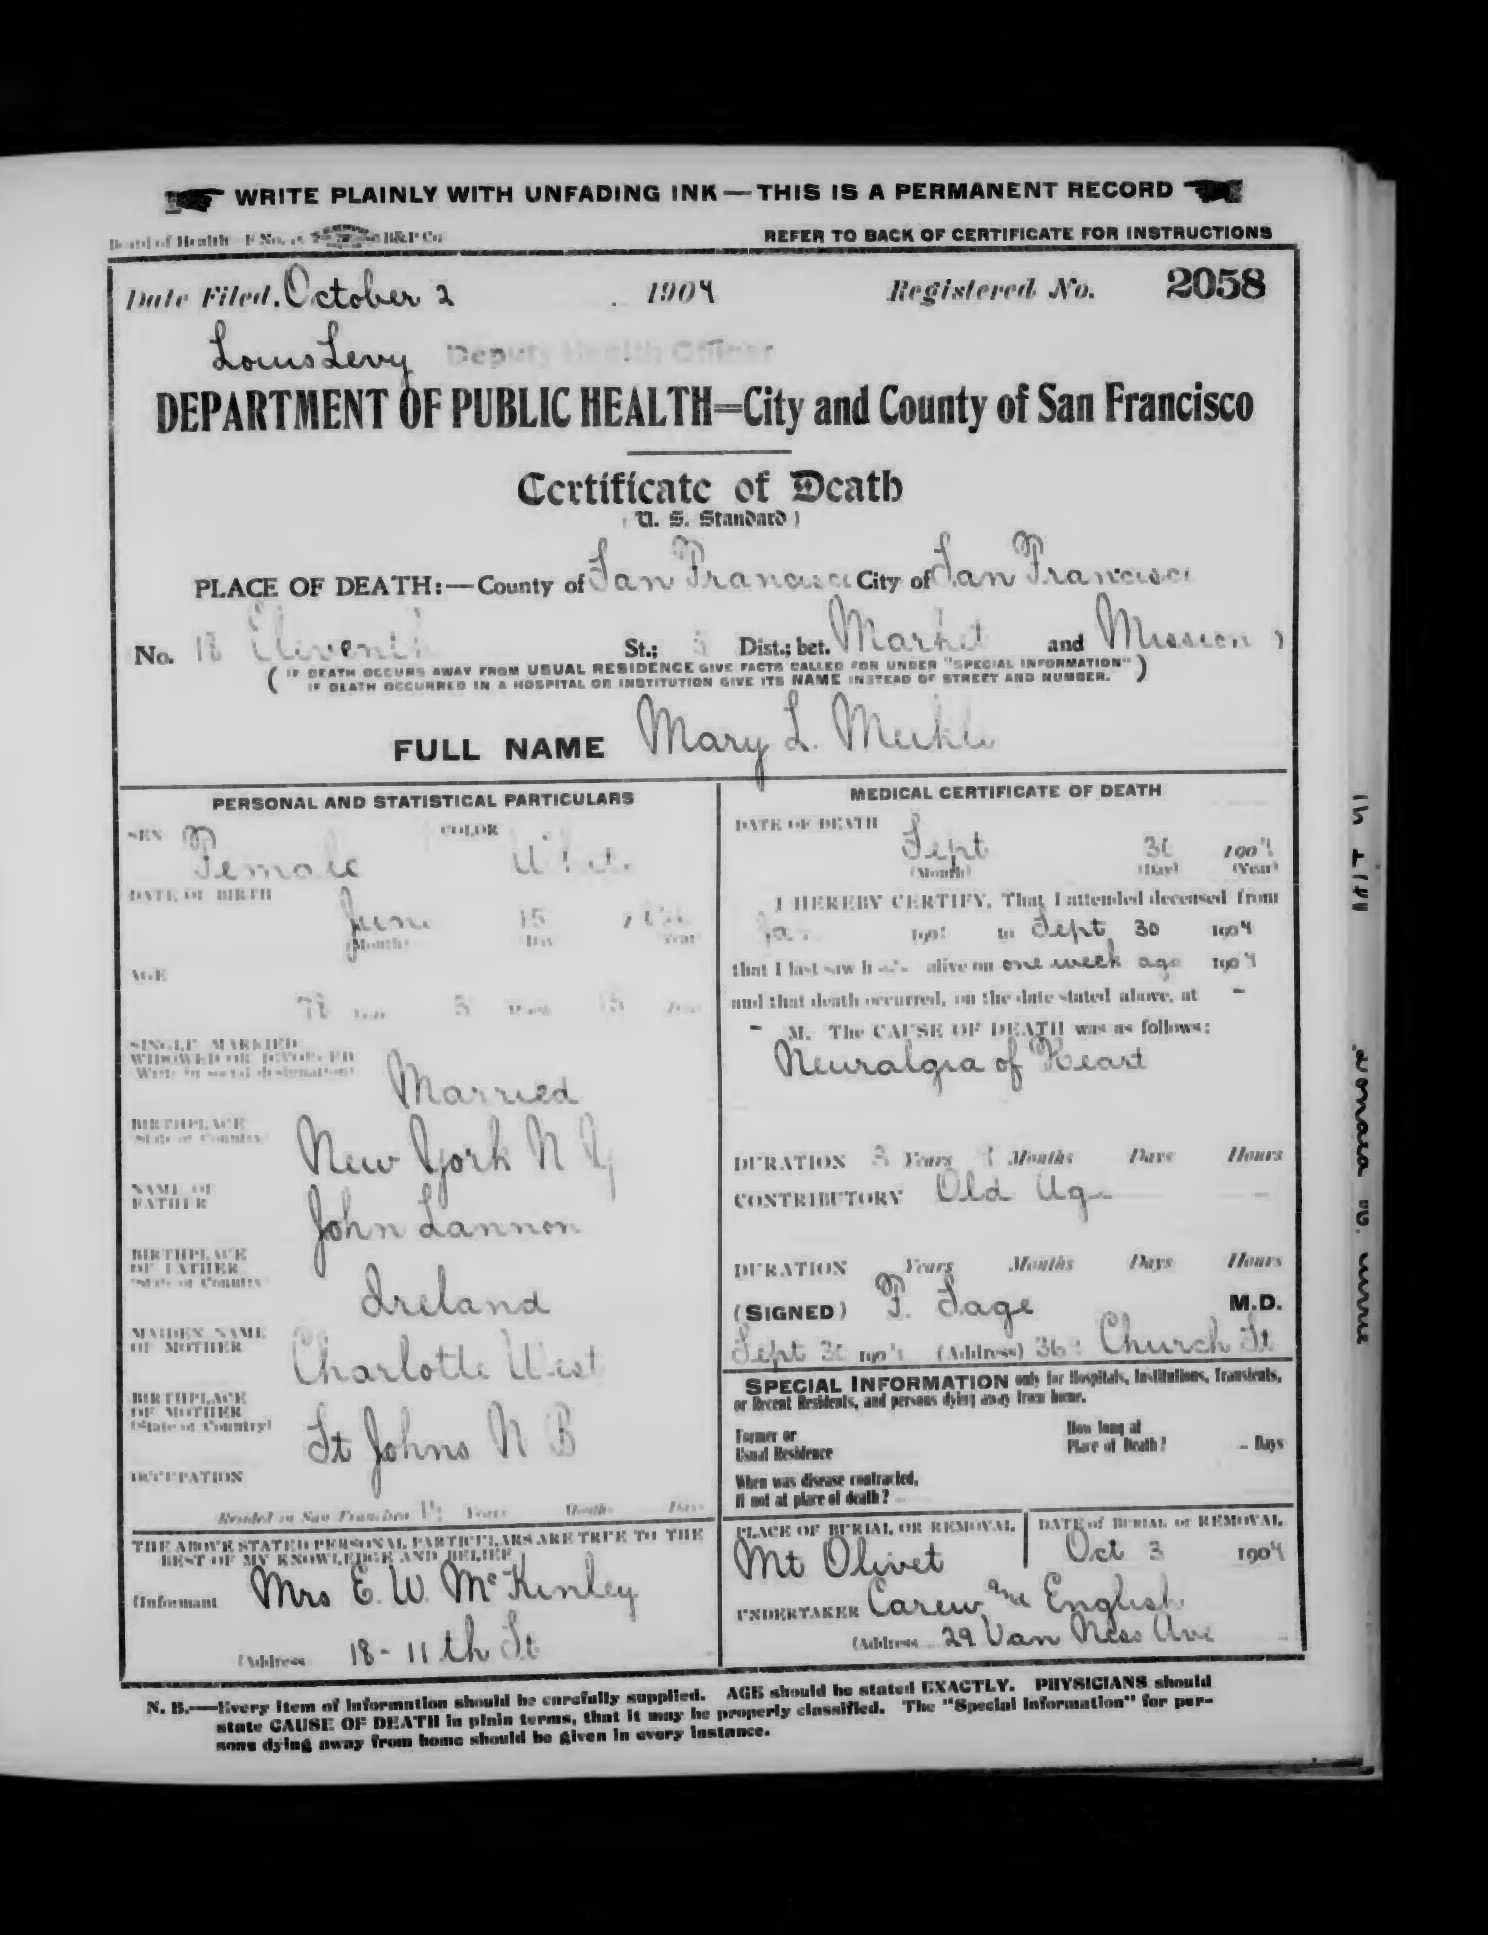 WRITE PLAINLY WITH UNFADING INK—THIS IS A PERMANENT RECORD
Board of Health—F No. B&P Co
REFER TO BACK OF CERTIFICATE FOR INSTRUCTIONS
Date Filed, October 2 1904 Registered No. 2058
Louis Levy Deputy Health Officer
DEPARTMENT OF PUBLIC HEALTH=City and County of San Francisco
Certificate of Death
(U. S. Standard)
PLACE OF DEATH:—County of San Francisco City of San Francisco
No. 18 Eleventh St.; 5 Dist.; bet. Market and Mission )
( IF DEATH OCCURS AWAY FROM USUAL RESIDENCE GIVE FACTS CALLED FOR UNDER "SPECIAL INFORMATION" )
IF DEATH OCCURRED IN A HOSPITAL OR INSTITUTION GIVE ITS NAME INSTEAD OF STREET AND NUMBER.
FULL NAME Mary L. Meikle
PERSONAL AND STATISTICAL PARTICULARS
SEX Female COLOR White
DATE OF BIRTH
June 15
(Month) Day Year
AGE
5 15 Days
SINGLE MARRIED
WIDOWED OR DIVORCED
Write in social designation)
Married
BIRTHPLACE
State or Country
New York N Y
NAME OF
FATHER
John Lannon
BIRTHPLACE
OF FATHER
State or Country
Ireland
MAIDEN NAME
OF MOTHER
Charlotte West
BIRTHPLACE
OF MOTHER
(State or Country)
St Johns N B
OCCUPATION
Resided in San Francisco Years Months Days
THE ABOVE STATED PERSONAL PARTICULARS ARE TRUE TO THE
BEST OF MY KNOWLEDGE AND BELIEF
(Informant Mrs E. W. McKinley
(Address 18 - 11th St
MEDICAL CERTIFICATE OF DEATH
DATE OF DEATH
Sept 30 1904
(Month) (Day) (Year)
I HEREBY CERTIFY, That I attended deceased from
Jan 190 to Sept 30 1904
that I last saw h alive on one week ago 1904
and that death occurred, on the date stated above, at -
- M. The CAUSE OF DEATH was as follows:
Neuralgia of Heart
DURATION 3 Years Months Days Hours
CONTRIBUTORY Old Age
DURATION Years Months Days Hours
(SIGNED) F. Sage M.D.
Sept 30 1904 (Address) Church St
SPECIAL INFORMATION only for Hospitals, Institutions, Transients,
or Recent Residents, and persons dying away from home.
Former or
Usual Residence
How long at
Place of Death? - Days
When was disease contracted,
If not at place of death?
PLACE OF BURIAL OR REMOVAL
Mt Olivet
DATE of BURIAL or REMOVAL
Oct 3 1904
UNDERTAKER Carew and English
(Address 29 Van Ness Ave
N. B.—Every item of information should be carefully supplied. AGE should be stated EXACTLY. PHYSICIANS should
state CAUSE OF DEATH in plain terms, that it may be properly classified. The "Special Information" for per-
sons dying away from home should be given in every instance.